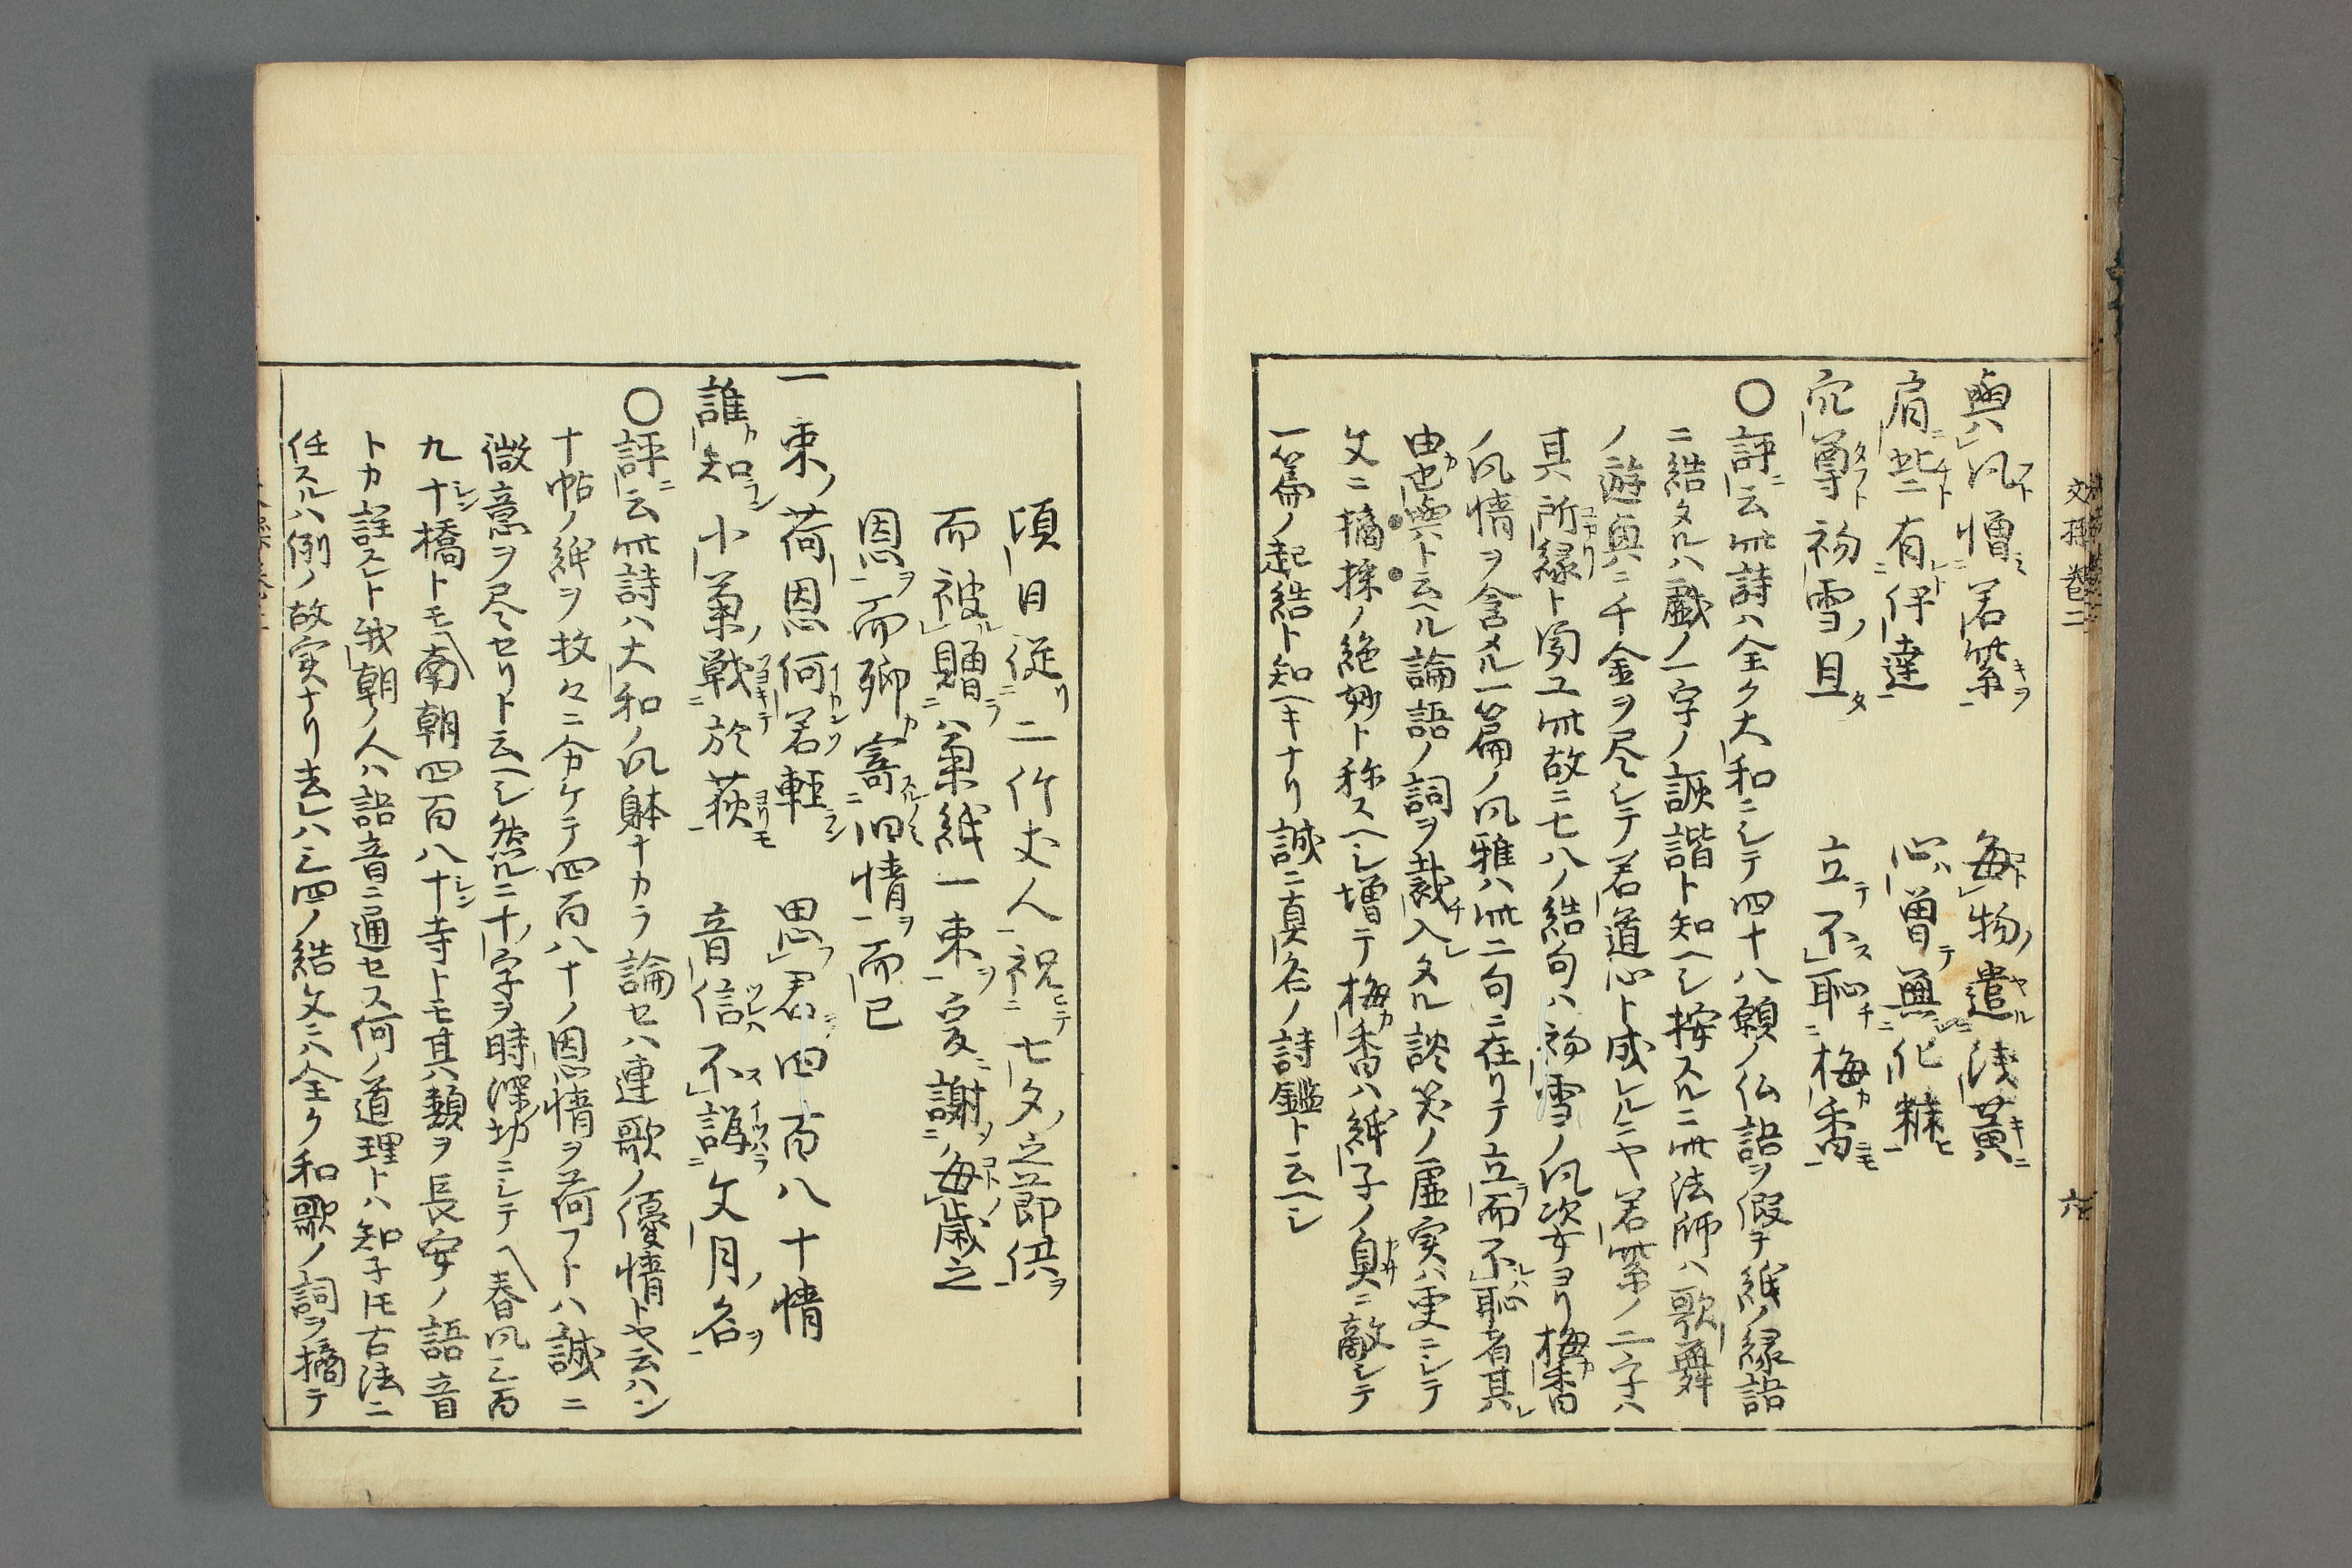 與風憎若紫　毎物遣浅黄
肩些有伊達　心曽無化粧
穴尊初雪且　立不恥梅香
〇評云此詩ハ全ク大和ニシテ四十八願ノ仏語ヲ仮テ紙ノ縁語
ニ結タルハ戯ノ一字ノ誹諧ト知ヘシ按スルニ此法師ハ歌舞
ノ遊興ニ千金ヲ尽シテ若道心ト成レルニヤ若紫ノ二字ハ
其所縁ト聞ユ此故ニ七八ノ結句ハ初雪ノ風次女ヨリ梅香
ノ風情ヲ含メル一篇ノ風雅ハ此二句ニ在リテ立而不恥者其
由也與ト云ヘル論語ノ詞ヲ裁入タル談笑ノ虚実ハ更ニシテ
文ニ摘採ノ絶妙ト称スヘシ増テ梅香ハ紙子ノ臭ニ敵シテ
一篇ノ起結ト知ヘキナリ誠ニ真名ノ詩鑑ト云ヘシ
文操巻二
六
頃日従二竹丈人祝七夕之節供
而被贈八菓紙一束爰謝毎歳之
恩而聊寄旧情而已
一束荷恩何若軽　思君四百八十情
誰知小菓戦於荻　音信不譌文月名
〇評云此詩ハ大和ノ風躰ナカラ論セハ連歌ノ優情トヤ云ハン
十帖ノ紙ヲ枚々ニ分ケテ四百八十ノ恩情ヲ荷フトハ誠ニ
微意ヲ尽セリト云ヘシ然ルニ十字ヲ時深切ニシテ春風三百
九十橋トモ南朝四百八十寺トモ其類ヲ長安ノ語音
トカ註スレト我朝ノ人ハ語音ニ通セス何ノ道理トハ知子𪜈古法ニ
任スルハ例ノ故実ナリ去レハ三四ノ結文ニハ全ク和歌ノ詞ヲ摘テ